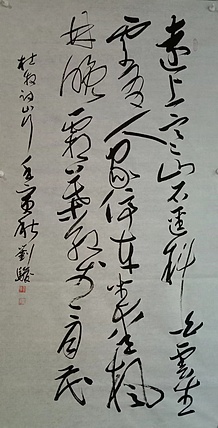 遠上寒山石逕斜白雲生
處有人家停车坐爱楓
林晚霜葉紅於二月花
杜牧诗山行 劉